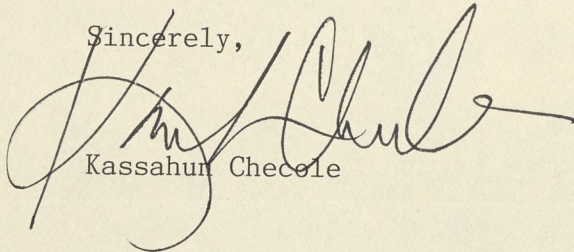 Sincerely,
Kassahun Checole